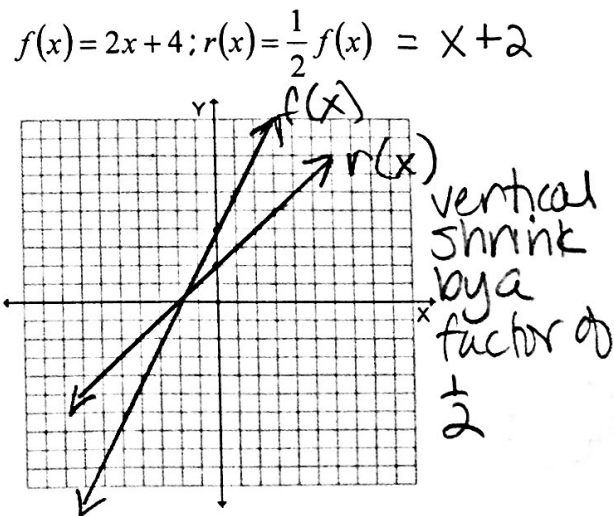 f(x) = 2x + 4; r(x) = 1/2 f(x) = x + 2
Y
f(x)
r(x)
vertical
shrink
by a
X
factor of
1/2